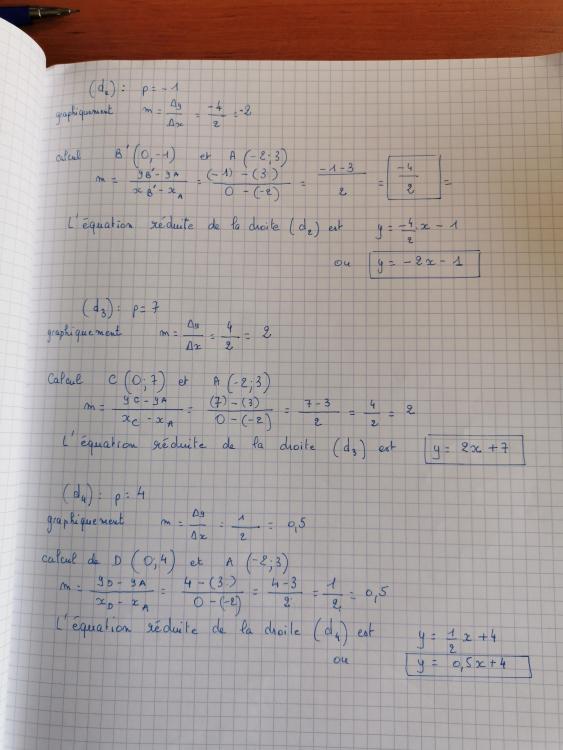 (d₂) : p = -1
graphiquement m = Δy/Δx = -4/2 = -2
calcul B'(0,-1) et A(-2;3)
m = yB' - yA / xB' - xA = (-1) - (3) / 0 - (-2) = -1-3 / 2 = -4/2 =
L'équation réduite de la droite (d₂) est y = -4/2 x - 1
ou y = -2x - 1
(d₃) : p = 7
graphiquement m = Δy/Δx = 4/2 = 2
Calcul C(0;7) et A(-2;3)
m = yC - yA / xC - xA = (7) - (3) / 0 - (-2) = 7-3 / 2 = 4/2 = 2
L'équation réduite de la droite (d₃) est y = 2x + 7
(d₄) : p = 4
graphiquement m = Δy/Δx = 1/2 = 0,5
calcul de D(0,4) et A(-2;3)
m = yD - yA / xD - xA = 4 - (3) / 0 - (-2) = 4-3 / 2 = 1/2 = 0,5
L'équation réduite de la droite (d₄) est y = 1/2 x + 4
ou y = 0,5x + 4